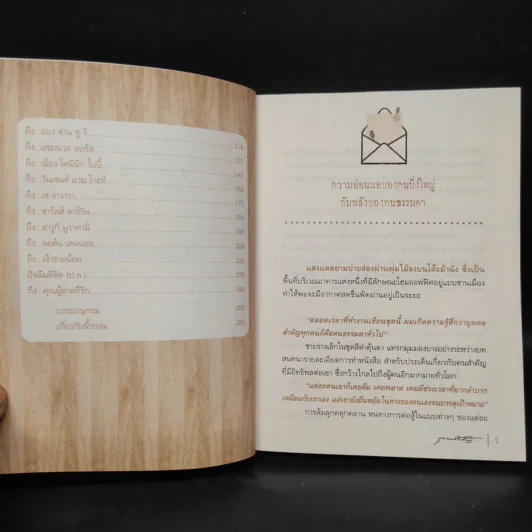 ถึง...ออง ซาน ซู จี 119
ถึง...แซมมวล มอร์ส 131
ถึง...ฌ็อง-โดมินิก โบบี้ 143
ถึง...วินเซนต์ แวน โก๊ะห์
ถึง...เช เกวารา 171
ถึง...ชาร์ลส์ ดาร์วิน
ถึง...ฮารูกิ มูราคามิ
ถึง...จอห์น เลนนอน
ถึง...เจ้าชายน้อย 221
ปัจฉิมลิขิต (ป.ล.) 235
ถึง...คุณผู้อ่านที่รัก 243
บรรณานุกรม 255
เกี่ยวกับนิ้วกลม 259
ความอ่อนแอของคนยิ่งใหญ่
กับพลังของคนธรรมดา
แสงแดดยามบ่ายส่องผ่านพุ่มไม้ลงบนโต๊ะม้านั่ง ซึ่งเป็น
พื้นที่บริเวณอาคารแห่งหนึ่งที่มีลักษณะโฮมออฟฟิศอยู่แถบชานเมือง
ทำให้พอจะมีอากาศสดชื่นพัดผ่านอยู่เป็นระยะ
"ตลอดเวลาที่ทำงานเขียนชุดนี้ ผมเกิดความรู้สึกว่าบุคคล
สำคัญทุกคนก็คือคนธรรมดาทั่วไป"
ชายร่างเล็กในชุดสีดำคุ้นตา แทรกมุมมองบางอย่างระหว่างบท
สนทนารายละเอียดการทำหนังสือ สำหรับประเด็นเกี่ยวกับคนสำคัญ
ที่มีอิทธิพลต่อเขา ซึ่งกว้างไกลไปถึงผู้คนอีกมากมายทั่วโลก
"แต่ละคนเขาก็เคยล้ม เคยพลาด เคยมีช่วงเวลาที่ยากลำบาก
เหมือนกับเราเอง แต่เขายังยืนหยัดในทางของตนเองจนบรรลุเป้าหมาย"
การล้มลุกคลุกคลาน หนทางการต่อสู้ในแบบต่างๆ ของแต่ละ